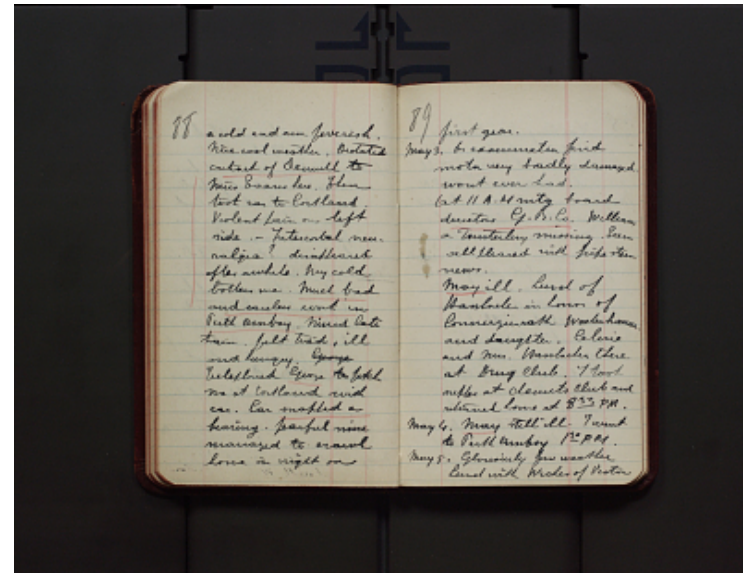 88
a cold and am feverish.
Nice cool weather. Dictated
contract of
Miss                  . Then
took car to Cortland.
Violent pain on left
side. - Intercostal neu-
ralgia? disappeared
after awhile. My cold
bothers me. Much bad
and careless work in
Perth Amboy. Missed late
train. felt tired, ill
and hungry. George
Telephoned George to fetch
me at Cortland with
car. Car snapped a
bearing. fearful noise
managed to crawl
home in night on
89
first gear.
May 3. On examination find
motor very badly damaged
worst ever had.
At 11 A.M. mtg board
directors G. B. Co. William
missing. Seem
well pleased with
news.
May ill. Lunch of
in honor of
and daughter. Celine
and Mrs.               there
at Drug Club. I took
at Chemists Club and
returned home at 8 33 P.M.
May 4. May still ill. I went
to Perth Amboy 1 20 P.M.
May 5. Gloriously fine weather
Lunch with              of